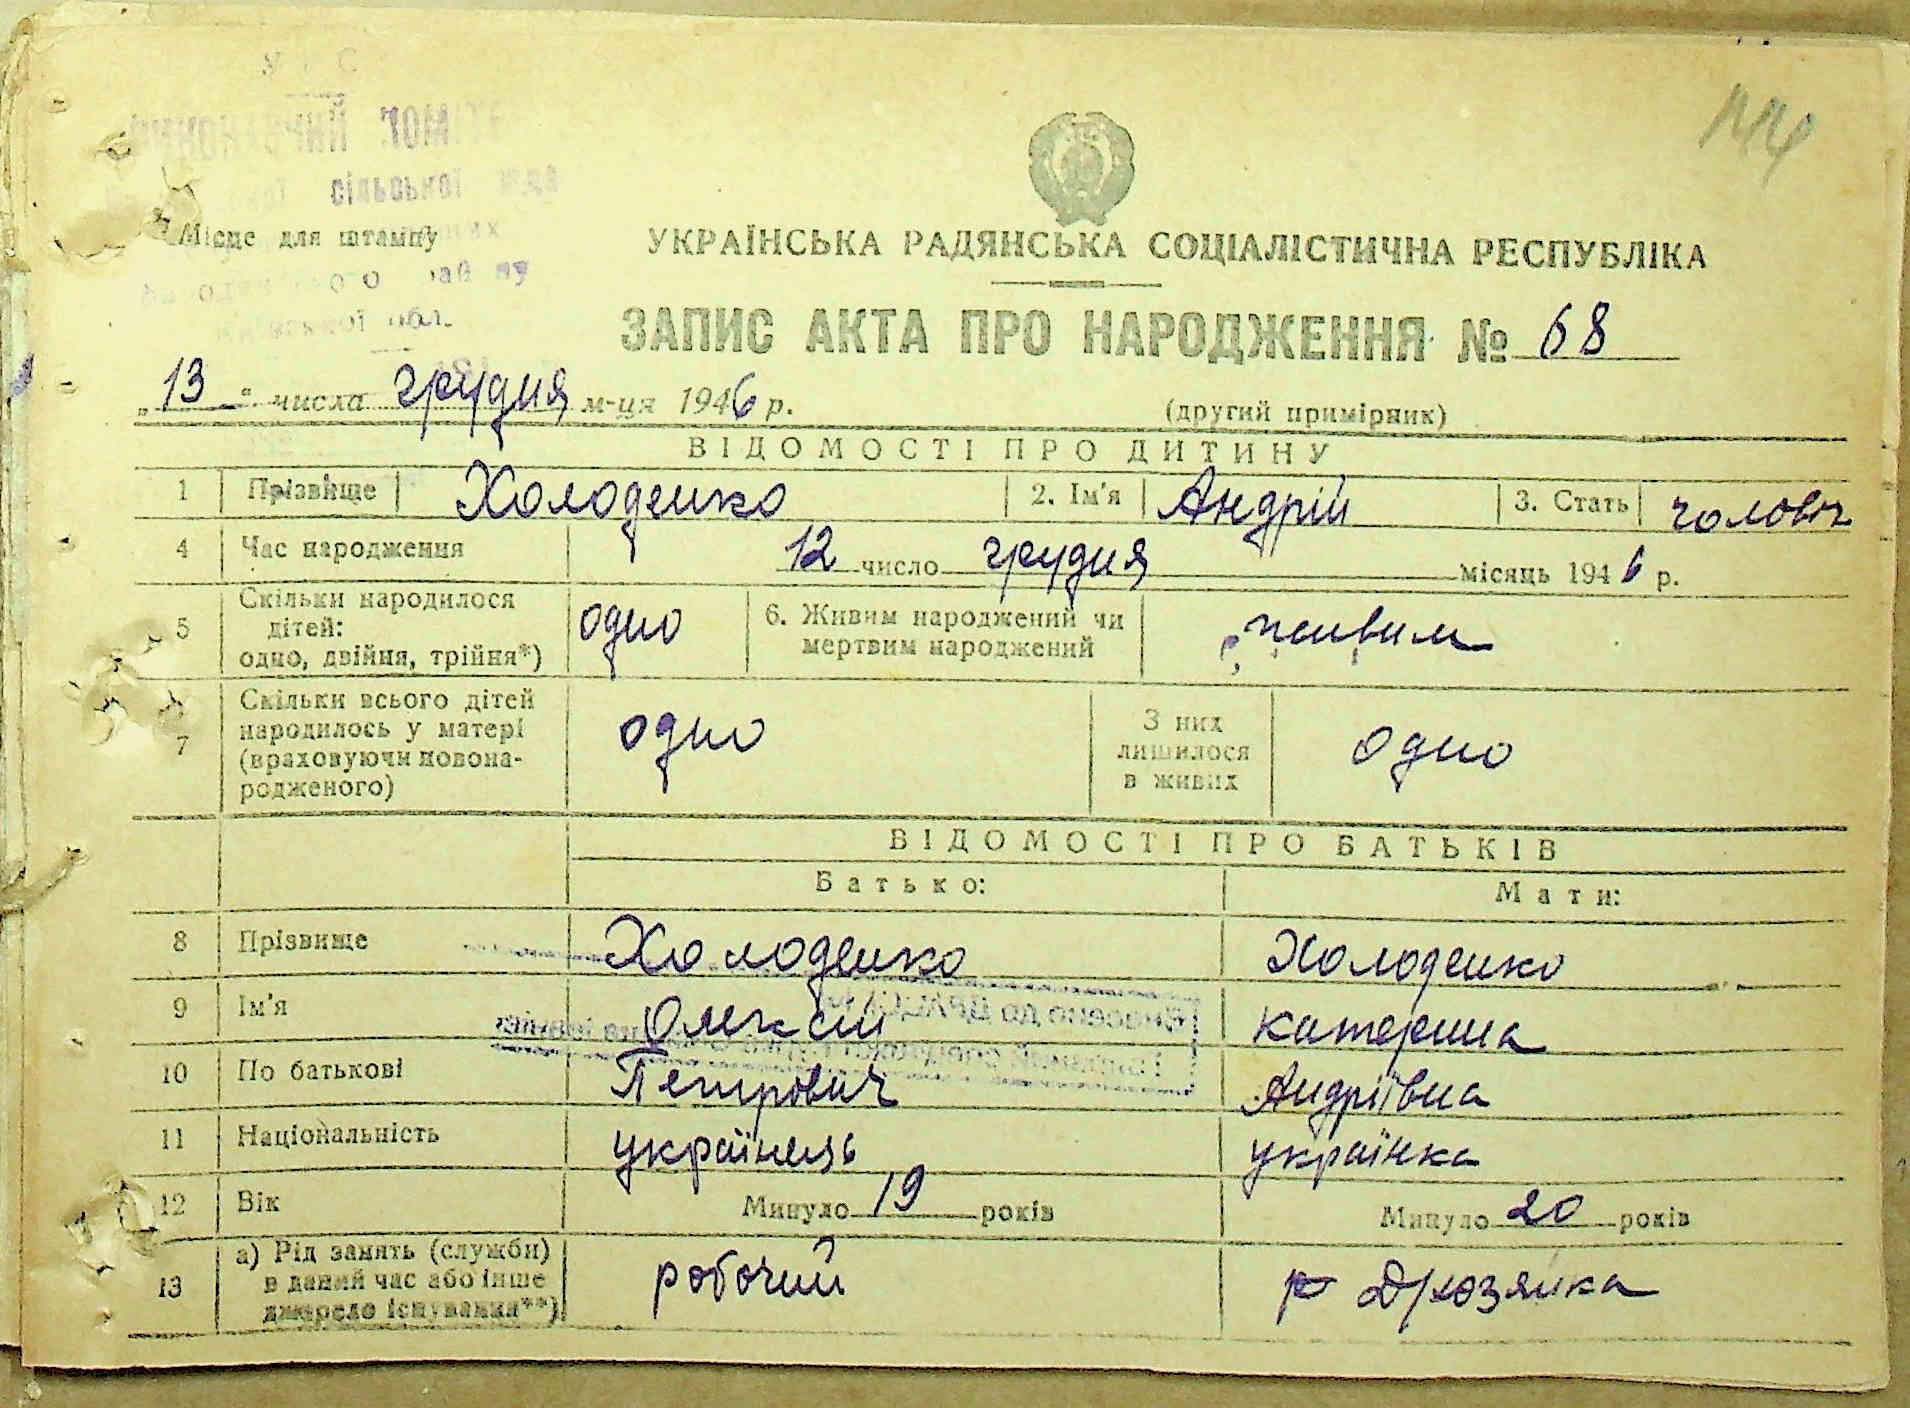 сільської
Місце для штампу
обл.
УКРАЇНСЬКА РАДЯНСЬКА СОЦІАЛІСТИЧНА РЕСПУБЛІКА
ЗАПИС АКТА ПРО НАРОДЖЕННЯ № 68
„13“ числа грудня м-ця 1946 р.
(другий примірник)
ВІДОМОСТІ ПРО ДИТИНУ
1 Прізвище Холоденко 2. Ім'я Андрій 3. Стать чоловіч
4 Час народження 12 число грудня місяць 1946 р.
5 Скільки народилося дітей: одно, двійня, трійня*) одно 6. Живим народжений чи мертвим народжений живим
7 Скільки всього дітей народилось у матері (враховуючи новона-родженого) одно З них лишилося в живих одно
ВІДОМОСТІ ПРО БАТЬКІВ
Батько: Мати:
8 Прізвище Холоденко Холоденко
9 Ім'я Олексій Катерина
10 По батькові Петрович Андріївна
11 Національність українець українка
12 Вік Минуло 19 років Минуло 20 років
13 а) Рід занять (служби) в даний час або інше джерело існування**) робочий Д/хозяйка